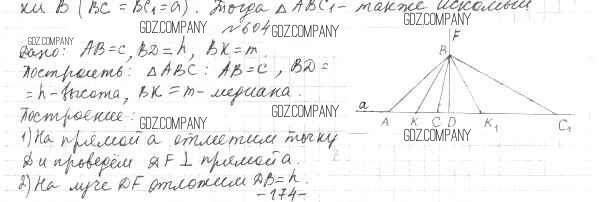 ки B (BC = BC₁ = a). Тогда △ABC₁ - также искомый
GDZ.COMPANY
№604
GDZ.COMPANY
Дано: AB = c, BD = h, BK = m.
GDZ.COMPANY
Построить: △ABC: AB = c, BD =
= h - высота, BK = m - медиана.
GDZ.COMPANY
Построение:
GDZ.COMPANY
1) На прямой a отметим точку
D и проведём DF ⊥ прямой a.
GDZ.COMPANY
2) На луче DF отложим DB = h.
-174-
GDZ.COMPANY
F
B
GDZ.COMPANY
a
A K C D K₁ C₁
GDZ.COMPANY
GDZ.COMPANY